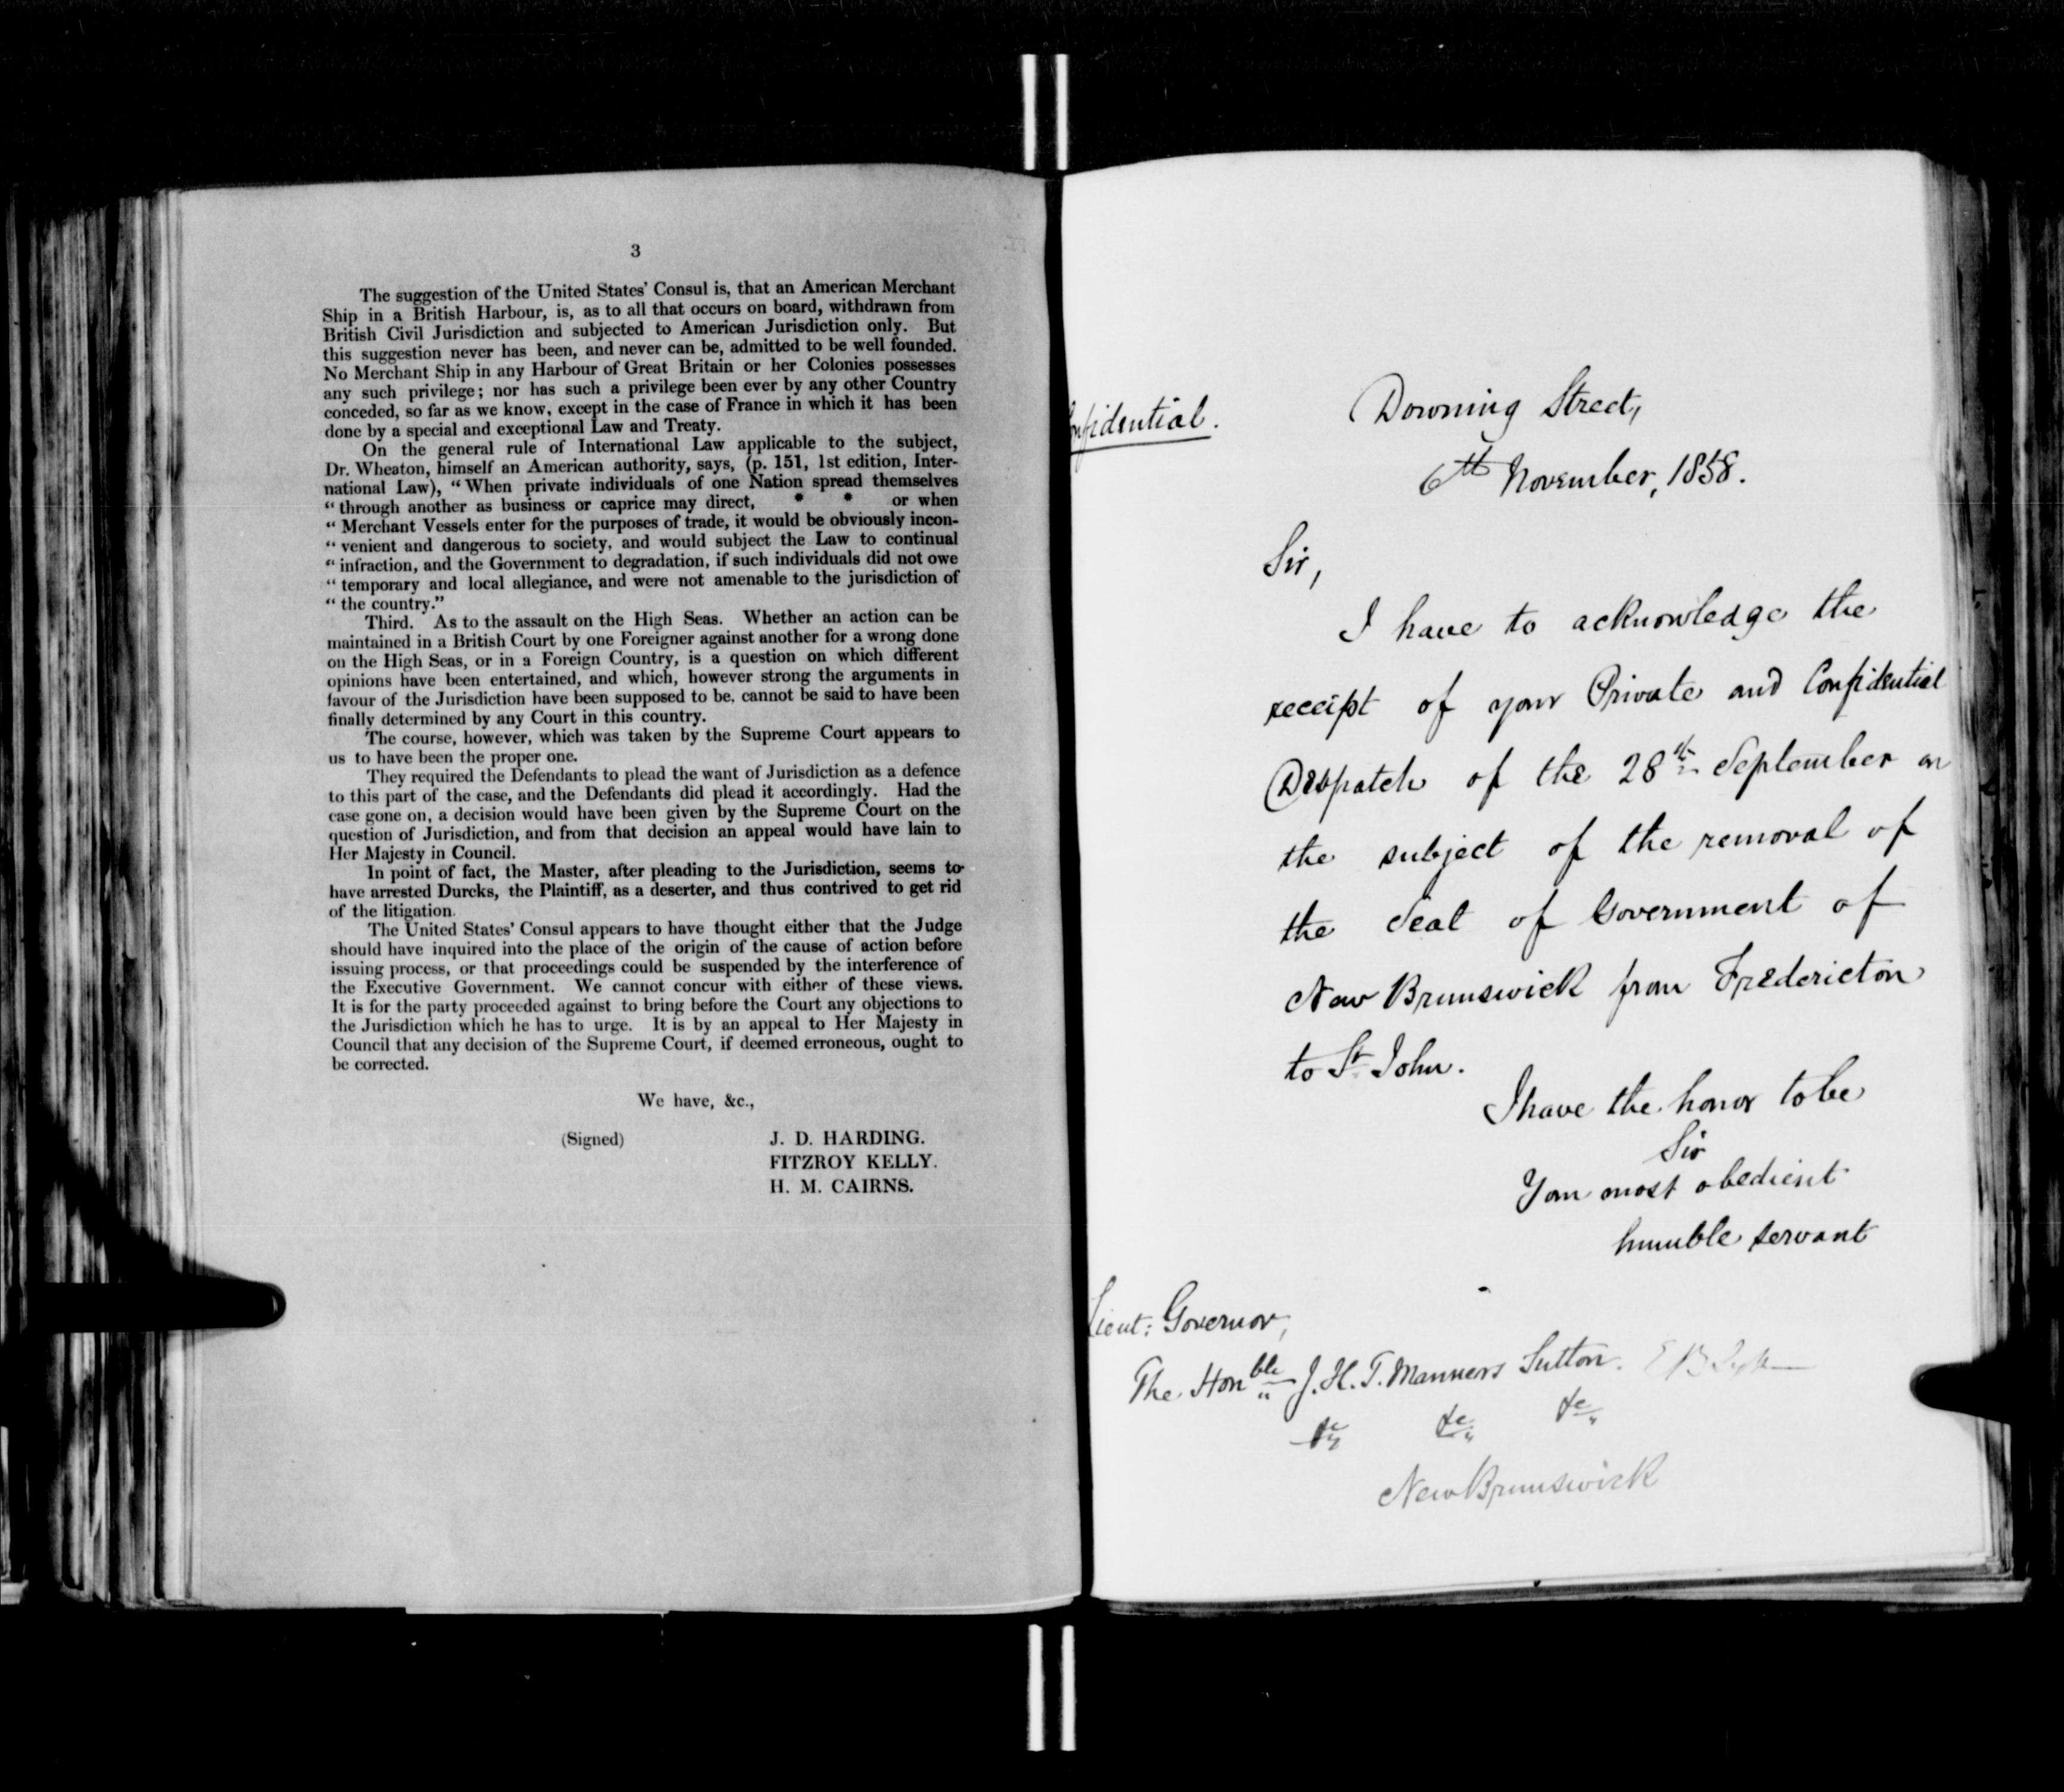 3
The suggestion of the United States' Consul is, that an American Merchant
Ship in a British Harbour, is, as to all that occurs on board, withdrawn from
British Civil Jurisdiction and subjected to American Jurisdiction only. But
this suggestion never has been, and never can be, admitted to be well founded.
No Merchant Ship in any Harbour of Great Britain or her Colonies possesses
any such privilege; nor has such a privilege been ever by any other Country
conceded, so far as we know, except in the case of France in which it has been
done by a special and exceptional Law and Treaty.
On the general rule of International Law applicable to the subject,
Dr. Wheaton, himself an American authority, says, (p. 151, 1st edition, Inter-
national Law), "When private individuals of one Nation spread themselves
" through another as business or caprice may direct, * * or when
" Merchant Vessels enter for the purposes of trade, it would be obviously incon-
" venient and dangerous to society, and would subject the Law to continual
" infraction, and the Government to degradation, if such individuals did not owe
" temporary and local allegiance, and were not amenable to the jurisdiction of
" the country."
Third. As to the assault on the High Seas. Whether an action can be
maintained in a British Court by one Foreigner against another for a wrong done
on the High Seas, or in a Foreign Country, is a question on which different
opinions have been entertained, and which, however strong the arguments in
favour of the Jurisdiction have been supposed to be, cannot be said to have been
finally determined by any Court in this country.
The course, however, which was taken by the Supreme Court appears to
us to have been the proper one.
They required the Defendants to plead the want of Jurisdiction as a defence
to this part of the case, and the Defendants did plead it accordingly. Had the
case gone on, a decision would have been given by the Supreme Court on the
question of Jurisdiction, and from that decision an appeal would have lain to
Her Majesty in Council.
In point of fact, the Master, after pleading to the Jurisdiction, seems to
have arrested Durcks, the Plaintiff, as a deserter, and thus contrived to get rid
of the litigation.
The United States' Consul appears to have thought either that the Judge
should have inquired into the place of the origin of the cause of action before
issuing process, or that proceedings could be suspended by the interference of
the Executive Government. We cannot concur with either of these views.
It is for the party proceeded against to bring before the Court any objections to
the Jurisdiction which he has to urge. It is by an appeal to Her Majesty in
Council that any decision of the Supreme Court, if deemed erroneous, ought to
be corrected.
We have, &c.,
(Signed) J. D. HARDING.
FITZROY KELLY.
H. M. CAIRNS.
onfidential.
Downing Street,
6th November, 1858.
Sir,
I have to acknowledge the
receipt of your Private and Confidential
Despatch of the 28th September on
the subject of the removal of
the Seat of Government of
New Brunswick from Fredericton
to St John.
I have the honor to be
Sir
Your most obedient
humble servant
Lieut: Governor,
The Honble J. H. T. Manners Sutton.
&c &c &c
New Brunswick